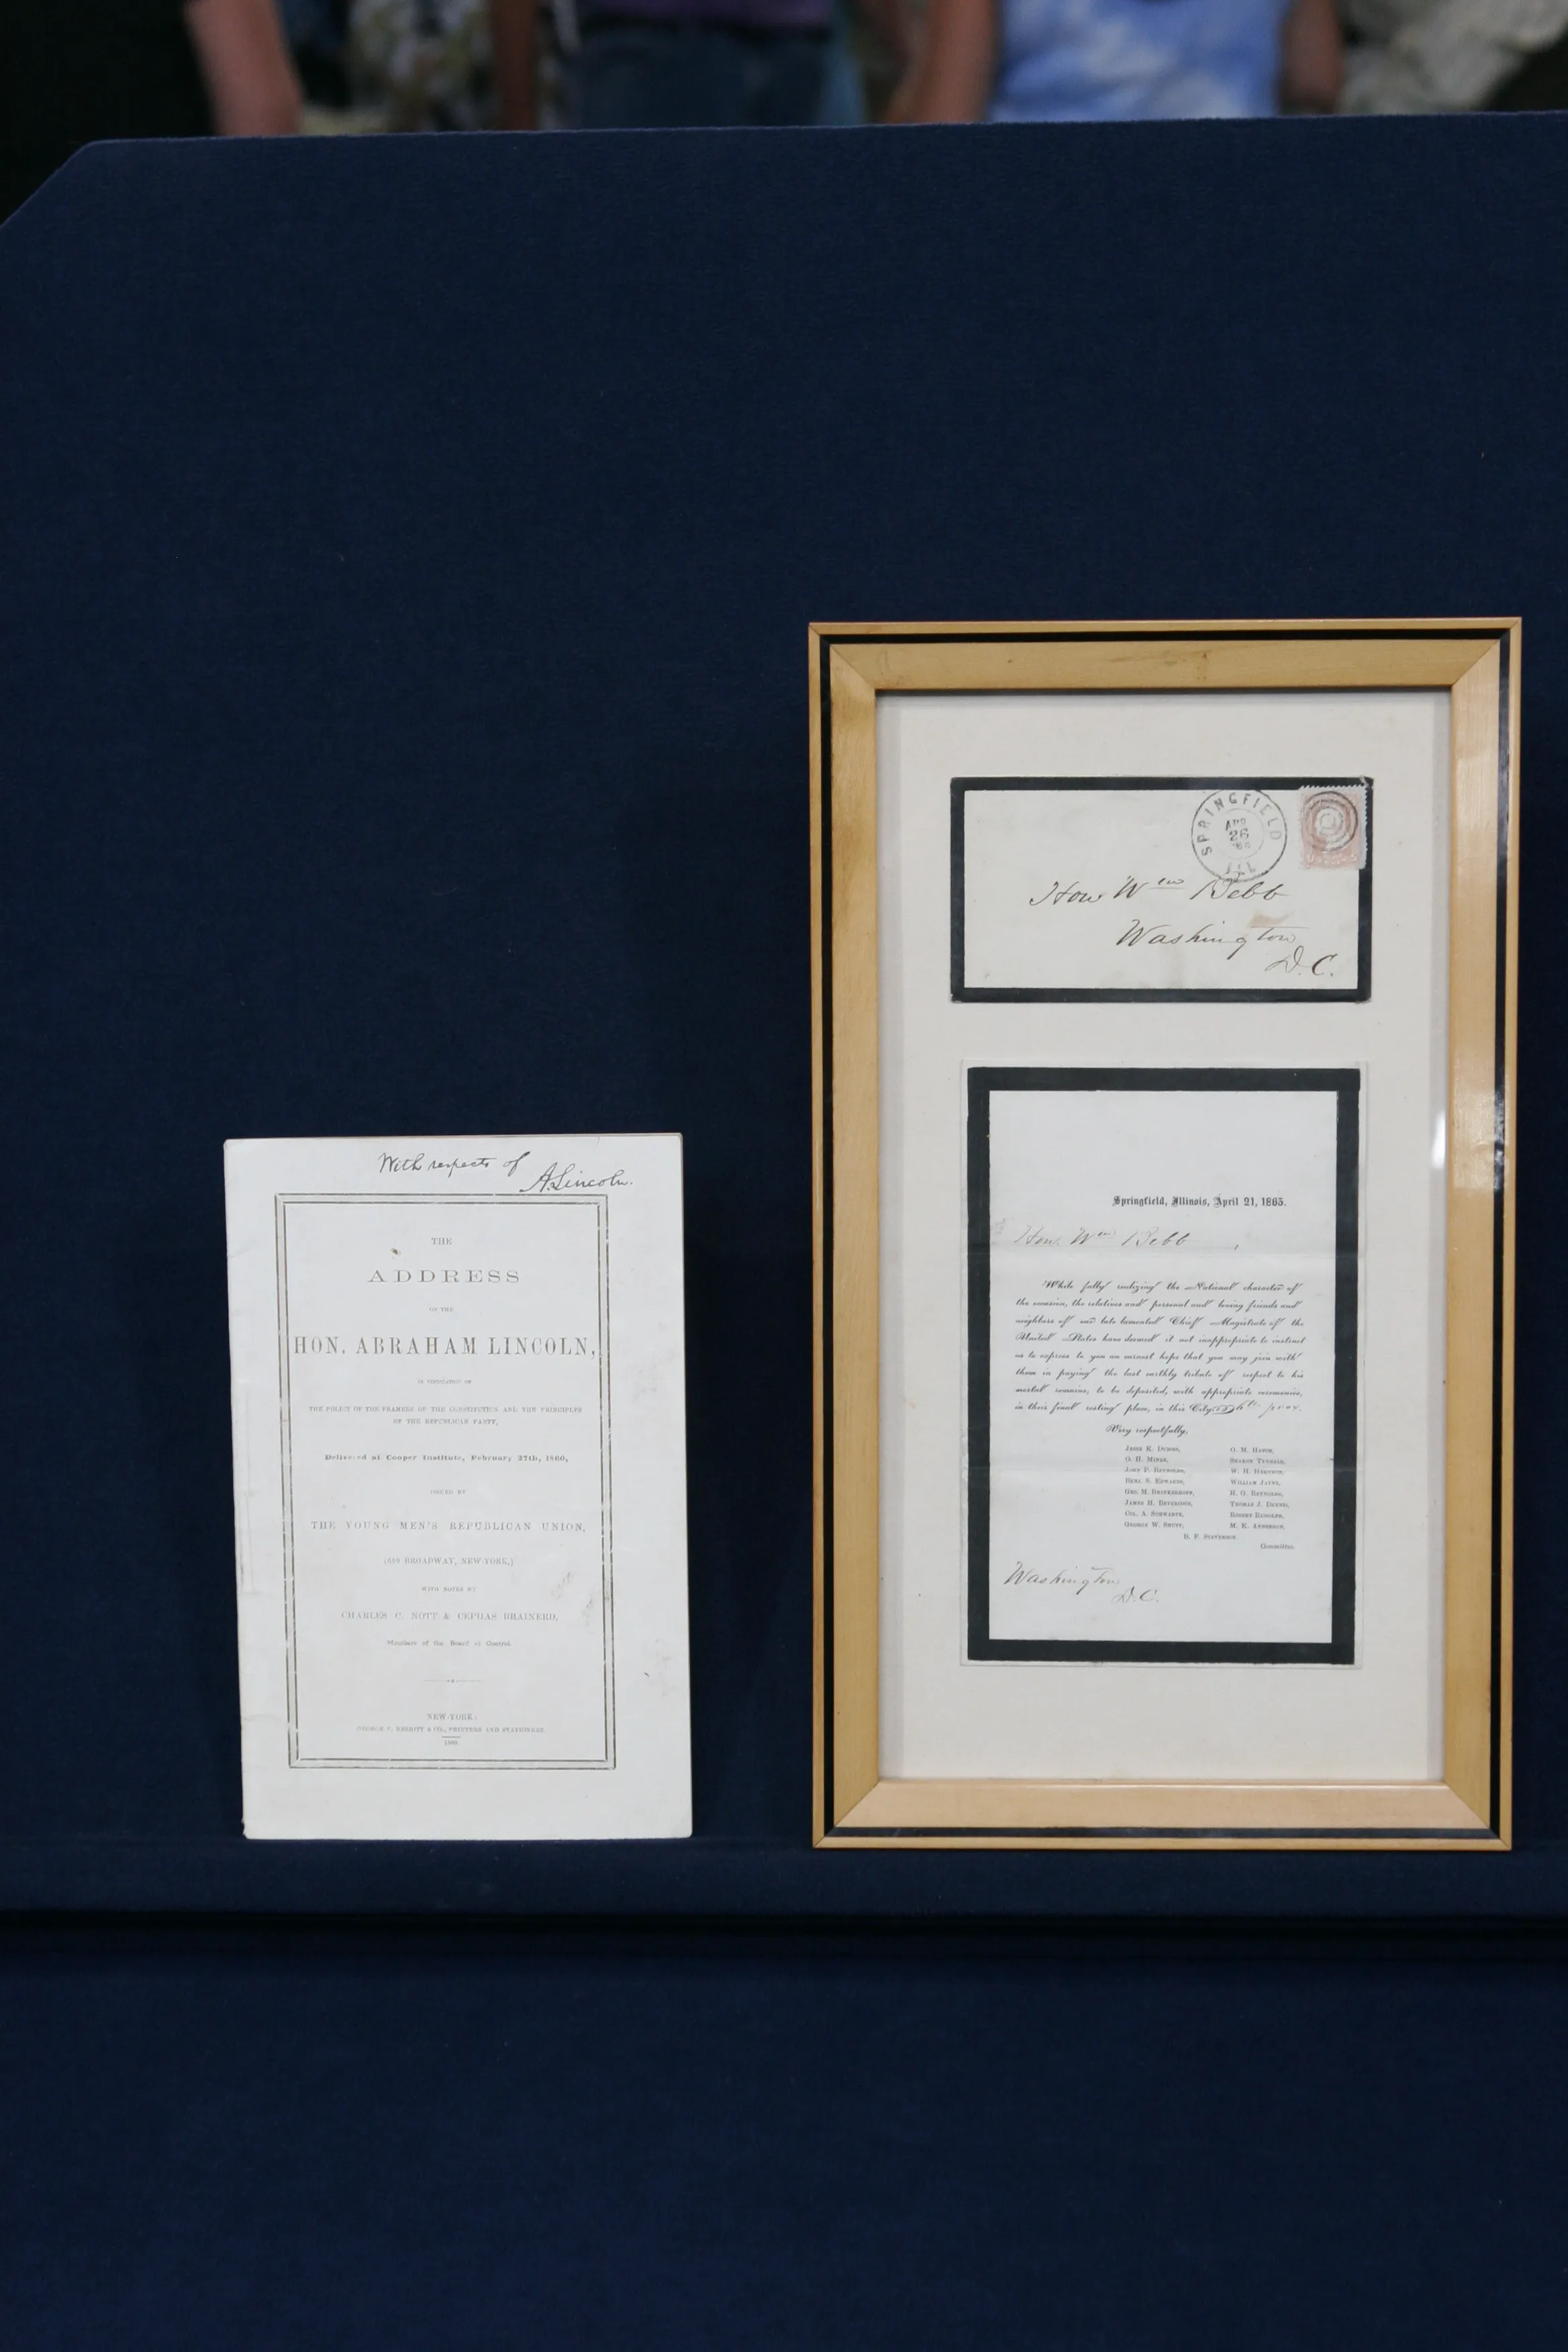 With respects of
A. Lincoln.
THE
ADDRESS
OF THE
HON. ABRAHAM LINCOLN,
IN VINDICATION OF
THE POLICY OF THE FRAMERS OF THE CONSTITUTION AND THE PRINCIPLES
OF THE REPUBLICAN PARTY,
Delivered at Cooper Institute, February 27th, 1860,
ISSUED BY
THE YOUNG MEN'S REPUBLICAN UNION,
(659 BROADWAY, NEW-YORK,)
WITH NOTES BY
CHARLES C. NOTT & CEPHAS BRAINERD,
Members of the Board of Control.
NEW-YORK:
GEORGE F. NESBITT & CO., PRINTERS AND STATIONERS.
1860.
SPRINGFIELD
APR
26
ILL
Hon Wm Bebb
Washington
D.C.
Springfield, Illinois, April 21, 1865.
Hon. Wm Bebb,
While fully realizing the National character of
the occasion, the relatives and personal and loving friends and
neighbors of our late lamented Chief Magistrate of the
United States have deemed it not inappropriate to instruct
us to express to you an earnest hope that you may join with
them in paying the last earthly tribute of respect to his
mortal remains, to be deposited, with appropriate ceremonies,
in their final resting place, in this City,
Very respectfully,
JESSE K. DUBOIS,
O. H. MINER,
JOHN P. REYNOLDS,
BENJ. S. EDWARDS,
GEO. M. BRINKERHOFF,
JAMES H. BEVERIDGE,
COL. A. SCHWARTZ,
GEORGE W. SHUTT,
O. M. HATCH,
SHARON TYNDALE,
W. H. HERNDON,
WILLIAM JAYNE,
H. G. REYNOLDS,
THOMAS J. DENNIS,
ROBERT RUDOLPH,
M. K. ANDERSON,
B. F. STEVENSON.
Committee.
Washington
D.C.